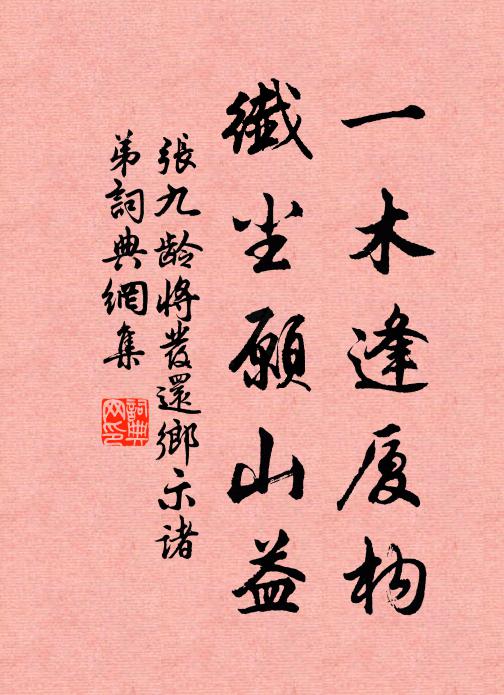 一木逢厦构
纖尘願山益
張九龄将發還鄉示诸
弟詞典網集
詞典网印